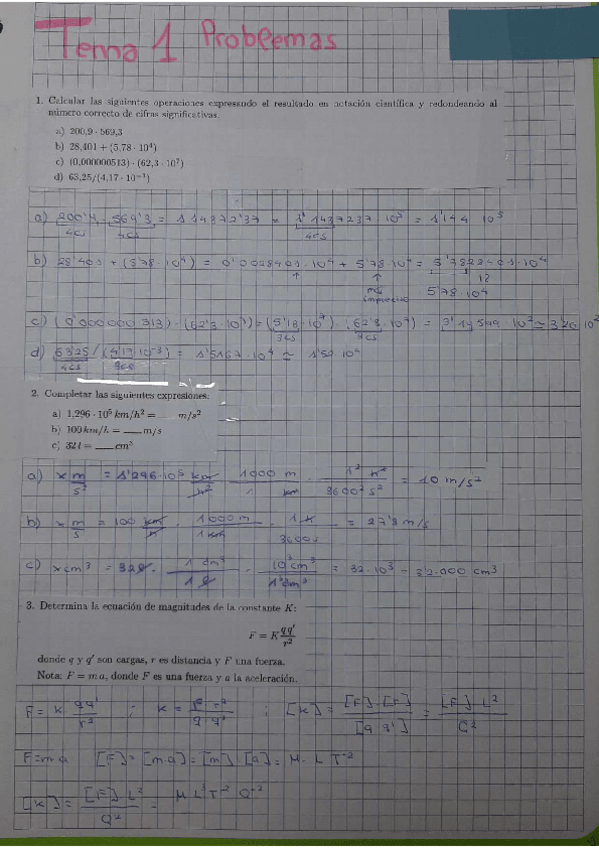 Tema 1 Problemas
1. Calcular las siguientes operaciones expresando el resultado en notación científica y redondeando al
número correcto de cifras significativas.
a) 200,9 · 569,3
b) 28,401 + (5,78 · 10⁴)
c) (0,000000513) · (62,3 · 10⁷)
d) 63,25/(4,17 · 10⁻³)
= 1'144 10⁵
4cs 4cs 4cs
b) 28'401 + (5'78 · 10⁴) = 0'0028401 · 10⁴ + 5'78 · 10⁴ = 5'7828401 · 10⁴
más
impreciso
5'78 · 10⁴
3cs 3cs
d) 63'25 / (4'17 · 10⁻³) = 1'5167 · 10⁴ ≃ 1'52 · 10⁴
4cs 3cs
2. Completar las siguientes expresiones:
a) 1,296 · 10⁵ km/h² = ___ m/s²
b) 100 km/h = ___ m/s
c) 32 l = ___ cm³
a) x m/s² = 1'296 · 10⁵ km/h² · 1000 m / 1 km · 1² h² / 3600² s² = 10 m/s²
b) x m/s = 100 km/h · 1000 m / 1 km · 1 h / 3600 s = 27'8 m/s
c) x cm³ = 32 l · 1 dm³ / 1 l · 10³ cm³ / 1³ dm³ = 32 · 10³ = 32.000 cm³
3. Determina la ecuación de magnitudes de la constante K:
F = K qq'/r²
donde q y q' son cargas, r es distancia y F una fuerza.
Nota: F = m a, donde F es una fuerza y a la aceleración.
F = K qq'/r² ; K = F r²/q q' ; [K] = [F] · [r²]/[q q'] = [F] L²/Q²
F = m·a [F] = [m·a] = [m] · [a] = M · L T⁻²
[K] = [F] L²/Q² = M L³ T⁻² Q⁻²